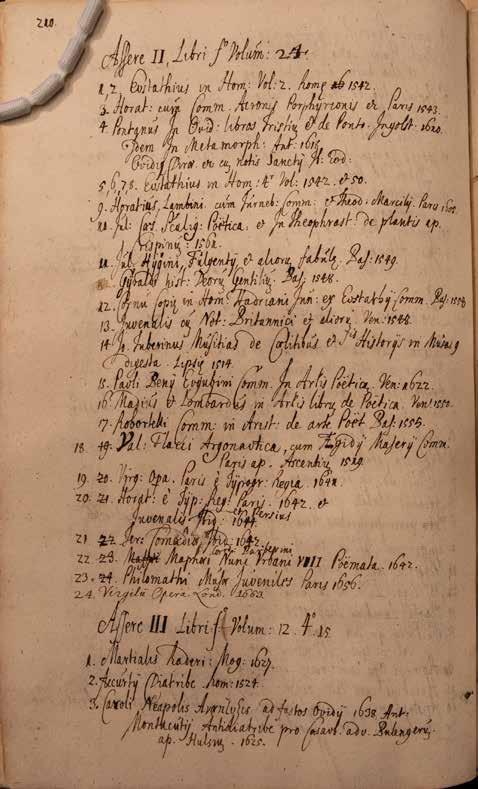 210.
Assere II, Libri fº Volum: 24
1, 2. Eustathius in Hom: Vol: 2. Romę 1542.
3. Horat: cum Comm. Acronis Porphyrionis &c Paris 1543.
4. Pontanus In Ovid: libros Tristiū & de Ponto. Ingolst: 1610.
Idem in Metamorph: Ant: 1618
Ovidij cū notis Sanctij
5, 6, 7, 8. Eustathius in Hom: 4r Vol: 1542. et 50.
9. Horatius, Lambini. cum Turneb: Comm: & Theod: Marcilij. Paris 1605.
10. Jul: Cæs. Scalig: Poëtica. et In Theophrast: de plantis ap.
J. Crispinū: 1561.
11. Jul: Hygini, Fulgentij, et aliorū fabulę. Bas: 1549.
Gyraldi hist: Deorū Gentiliū. Bas: 1548.
12. Cornu copię in Hom: Hadriani Jun: ex Eustathij Comm. Bas: 1558
13. Juvenalis cū Not: Britannici et aliorū. Ven: 1548.
14. Tuberinus Musitias de Cælitibus & Historijs in Musas 9
digesta. Lipsię 1514.
15. Pauli Benij Eugubini Comm. In Artis Poëtica. Ven: 1622.
16. Magius et Lombardus in Artis libru de Poëtica. Ven: 1550.
17. Robortelli Comm: in Arist: de arte Poët Bas: 1555.
18. 19. Val: Flacci Argonautica, cum Ægidij Maserij Comm.
Paris ap. Ascentiū 1519.
19. 20. Virg: Opa. Paris è Typogr: Regia. 1641.
20. 21. Horat: è Typ: Reg: Paris. 1642. et
Juvenalis et Persius Ibid: 1644.
21. 22. Ter: Comœdię, Ibid: 1642.
22. 23. Maphæi Card: Barberini Nunc Urbani VIII Poëmata. 1642.
23. 24. Philomathi Musæ Juveniles Paris 1656.
24. Virgelii Opera Lond. 1663
Assere III Libri fº Volum: 12. 4º 15
1. Martialis Raderi: Mog: 1627.
2. Accursij Diatribe Rom: 1524.
3. Caroli Neapolis Anaptyxis ad fastos Ovidij 1638 Ant:
Montacutij Antidiatribe pro Casaub. adv. Bulengerū.
ap. Hulsiū. 1625.